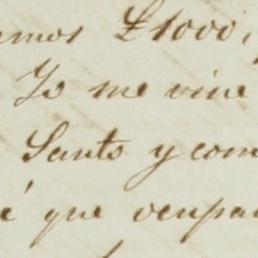 emos £1000,
Yo me vine
Santo y com
é que ocupa